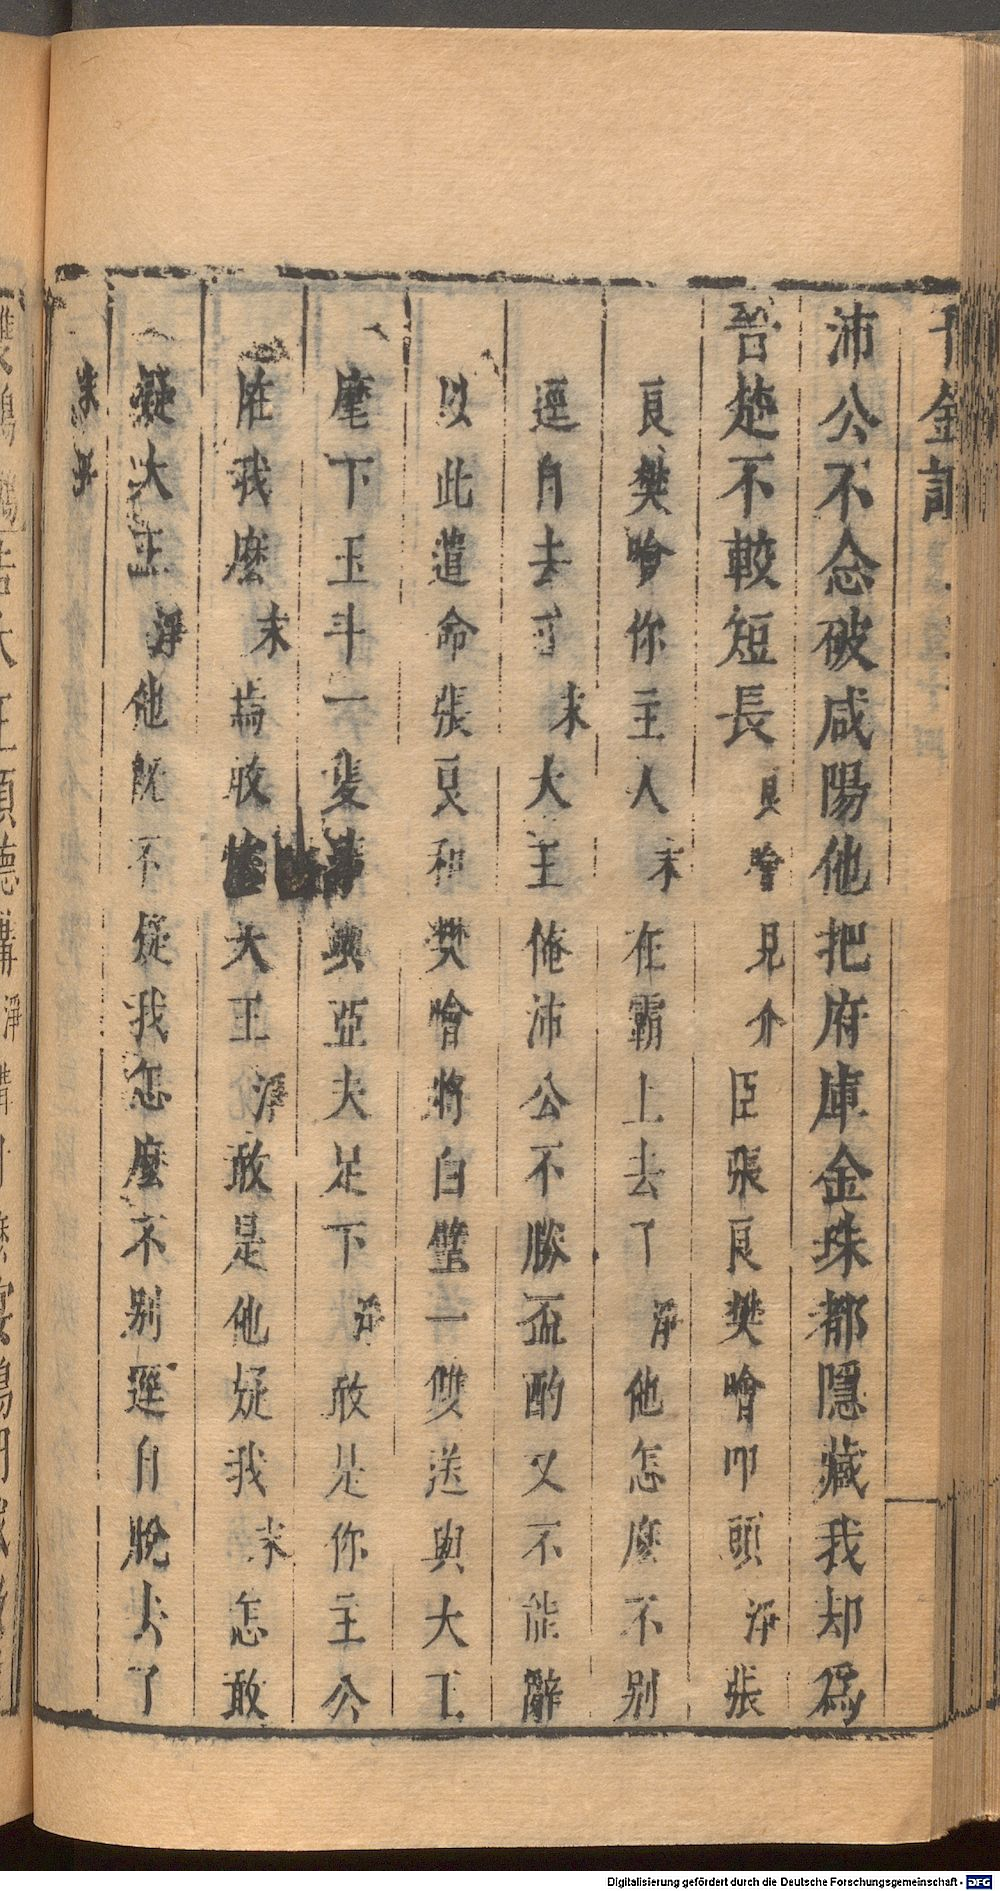 千金記
沛公不念破咸陽他把府庫金珠都隱藏我却為
吾楚不較短長良噲見介臣張良樊噲叩頭淨張
良樊噲你主人末在霸上去了淨他怎麽不別
逕自去了末大王俺沛公不勝盃酌又不能辭
以此遣命張良和樊噲將白璧一雙送與大王
麾下玉斗一雙 與亞夫足下淨敢是你主公
推我麽末 敢 大王淨敢是他疑我末怎敢
疑大王淨他既不疑我怎麽不別逕自脫去了
末
Digitalisierung gefördert durch die Deutsche Forschungsgemeinschaft - DFG